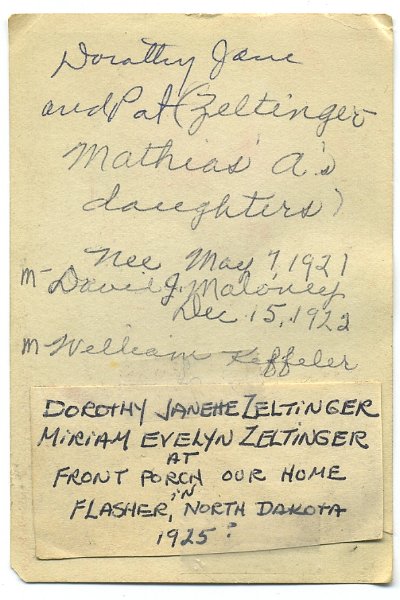 Dorothy Jane
and Pat (Zeltinger
Mathias A.'s
daughters)
Nee May 7, 1921
m- David J. Maloney
Dec 15, 1922
m William Keffeler
DOROTHY JANEHE ZELTINGER
MIRIAM EVELYN ZELTINGER
AT
FRONT PORCH OUR HOME
IN
FLASHER, NORTH DAKOTA
1925?